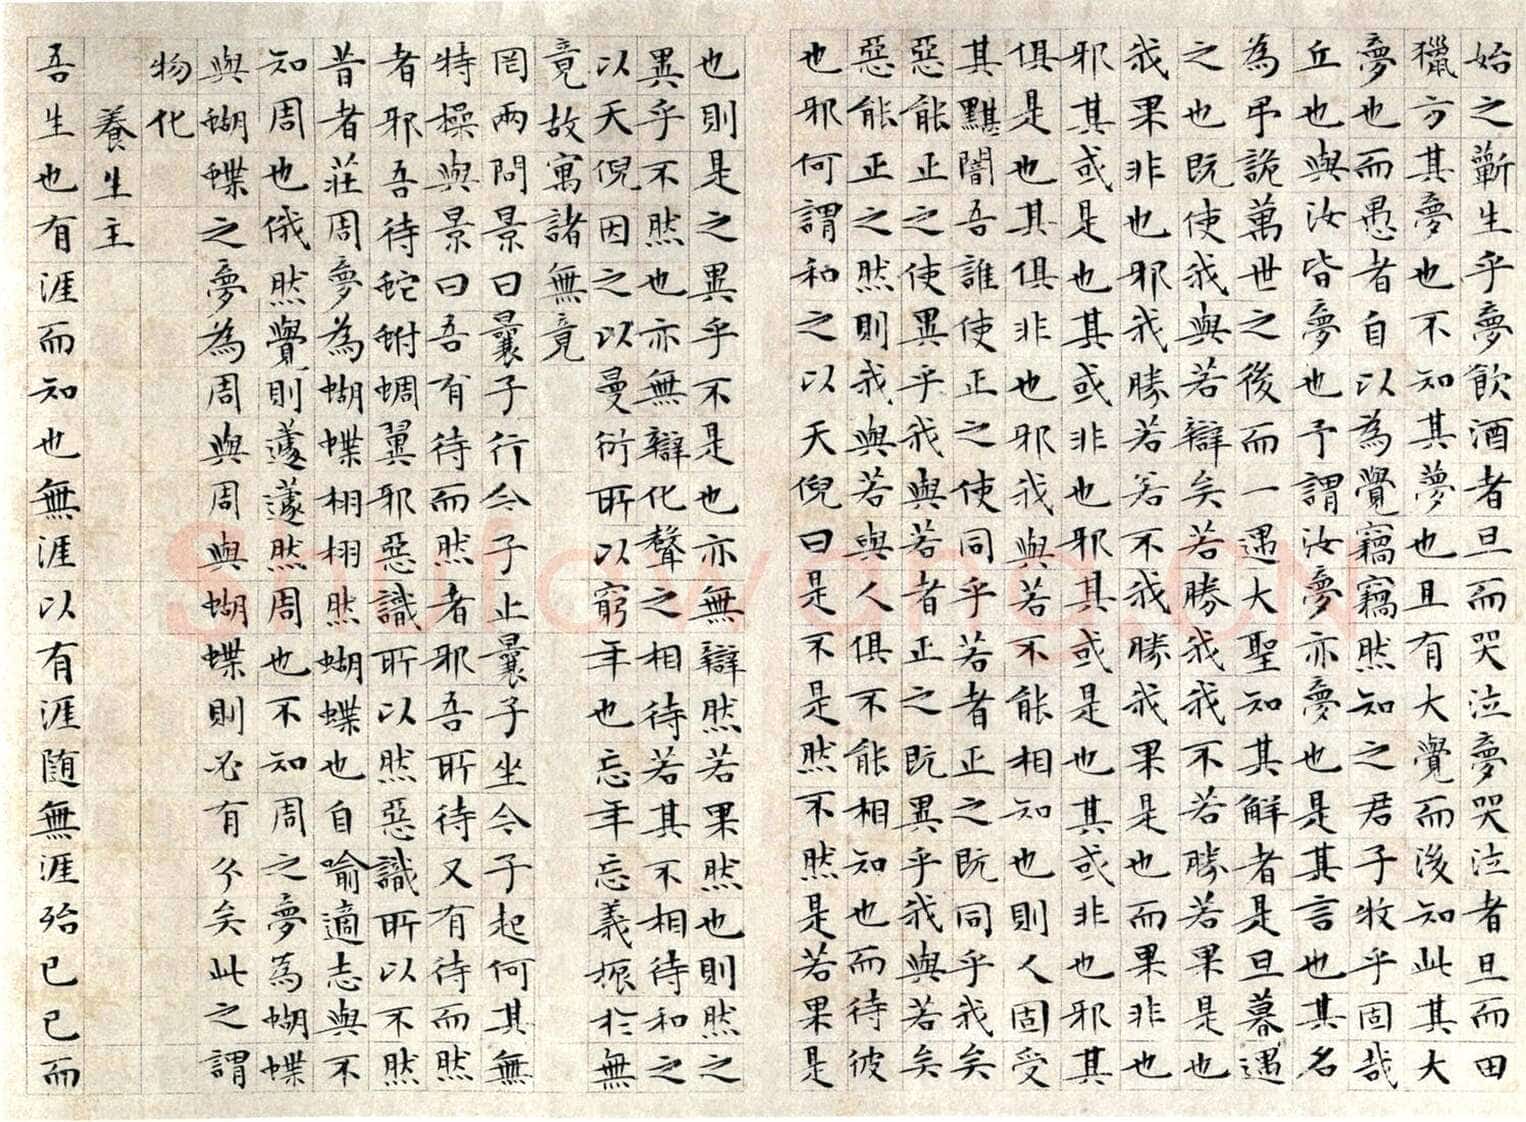 始之蘄生乎夢飲酒者旦而哭泣夢哭泣者旦而田
獵方其夢也不知其夢也且有大覺而後知此其大
夢也而愚者自以為覺竊竊然知之君子牧乎固哉
丘也與汝皆夢也予謂汝夢亦夢也是其言也其名
為弔詭萬世之後而一遇大聖知其解者是旦暮遇
之也既使我與若辯矣若勝我我不若勝若果是也
我果非也邪我勝若若不我勝我果是也而果非也
邪其或是也其或非也邪其或是也其或非也邪其
俱是也其俱非也邪我與若不能相知也則人固受
其黮闇吾誰使正之使同乎若者正之既同乎我矣
惡能正之使異乎我與若者正之既異乎我與若矣
惡能正之然則我與若與人俱不能相知也而待彼
也邪何謂和之以天倪曰是不是然不然是若果是
也則是之異乎不是也亦無辯然若果然也則然之
異乎不然也亦無辯化聲之相待若其不相待和之
以天倪因之以曼衍所以窮年也忘年忘義振於無
竟故寓諸無竟
罔兩問景曰曩子行今子止曩子坐今子起何其無
特操與景曰吾有待而然者邪吾所待又有待而然
者邪吾待蛇蚹蜩翼邪惡識所以然惡識所以不然
昔者莊周夢為蝴蝶栩栩然蝴蝶也自喻適志與不
知周也俄然覺則蘧蘧然周也不知周之夢為蝴蝶
與蝴蝶之夢為周與周與蝴蝶則必有分矣此之謂
物化
養生主
吾生也有涯而知也無涯以有涯隨無涯殆已已而
Shufawang.CN